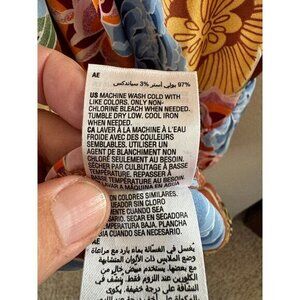 AE
97% بولي أستر 3% سباندكس
US MACHINE WASH COLD WITH
LIKE COLORS. ONLY NON-
CHLORINE BLEACH WHEN NEEDED.
TUMBLE DRY LOW. COOL IRON
WHEN NEEDED.
CA LAVER À LA MACHINE À L'EAU
FROIDE AVEC DES COULEURS
SEMBLABLES. UTILISER UN
AGENT DE BLANCHIMENT NON
CHLORÉ SEULEMENT AU BESOIN.
SÉCHER PAR CULBUTAGE À BASSE
TEMPÉRATURE. REPASSER À
BASSE TEMPÉRATURE AU BESOIN.
LAVAR A MÁQUINA EN AGUA
ON COLORES SIMILARES.
UEADOR SIN CLORO
CUANDO SEA
SARIO. SECAR EN SECADORA
TEMPERATURA BAJA. PLANCHA
BIA CUANDO SEA NECESARIO.
AE
يغسل في الغسالة بماء بارد مع مراعاة
وضع الملابس ذات الألوان المتشابهة
مع بعضها. يستخدم مبيض خال من
الكلورين عند اللزوم فقط. يجفف